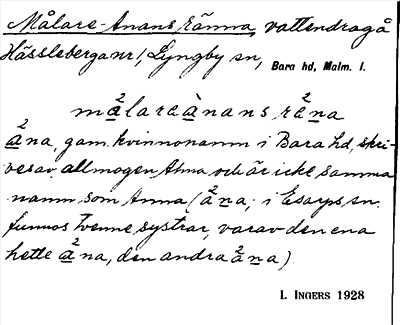 Målare-Anans ränna, vattendrag å
Hässleberga nr 1, Lyngby sn, Bara hd, Malm. l.
målareànansräna
ána, gam. kvinnonamn i Bara hd, skri-
ves av allmogen Atna och är icke samma
namn som Anna (áṉa; i Esarps sn.
funnos tvenne systrar, varav den ena
hette ána, den andra áṉa)
I. INGERS 1928